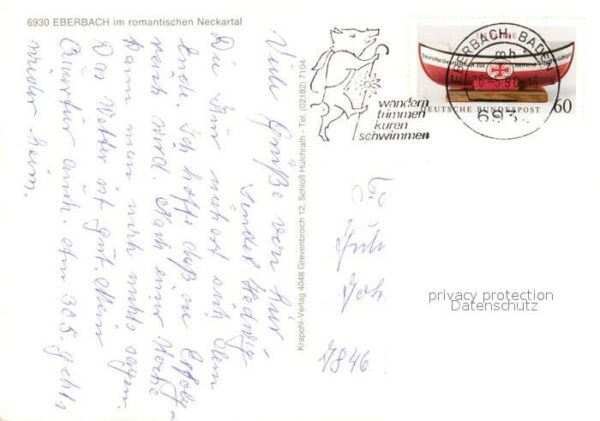 6930 EBERBACH im romantischen Neckartal
Viele Grüße von hier
sendet Hedwig
Die Kur neigt sich dem
Ende. Ich hoffe daß sie Erfolg
wird. Nach einer Woche
kann man noch nichts sagen.
Das Wetter ist gut. Mein
auch. Am 30.5. gehts
wieder heim.
Krapohl-Verlag 4048 Grevenbroich 12, Schloß Hülchrath - Tel. (02182) 7104
wandern
trimmen
kuren
schwimmen
EBERBACH, BADEN
mh
693
DEUTSCHE BUNDESPOST
60
7846
privacy protection
Datenschutz